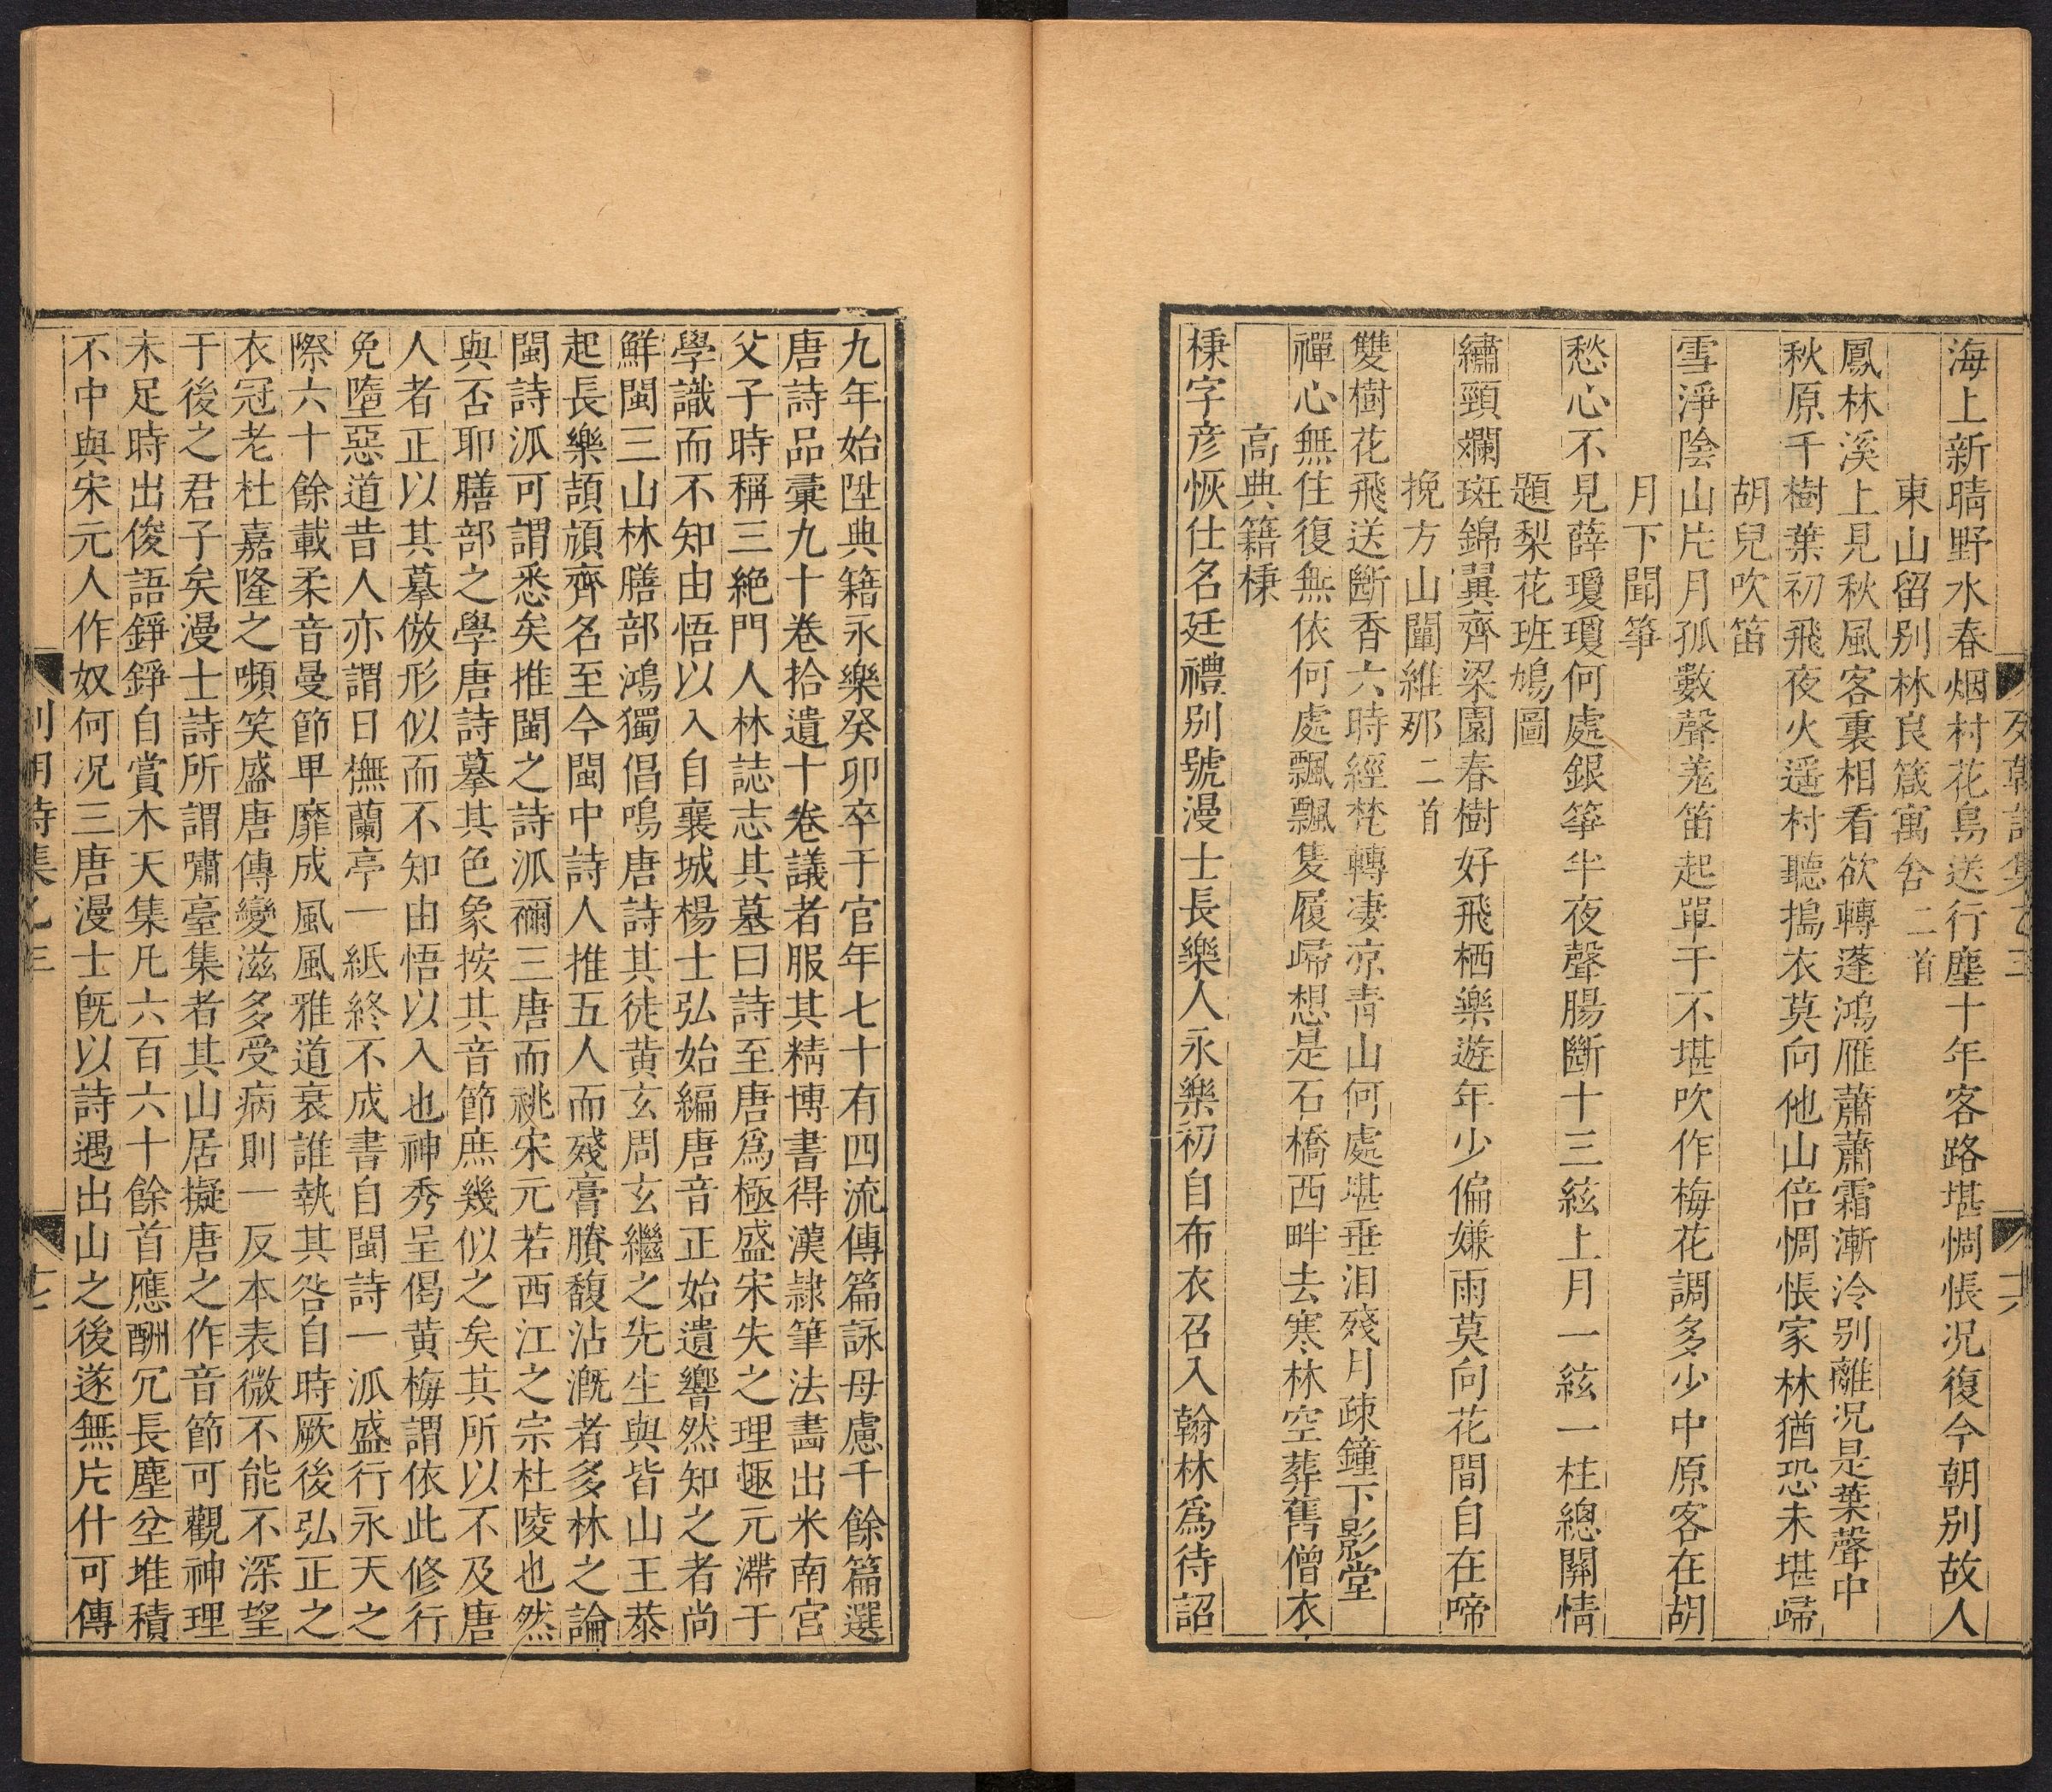 海上新晴野水春烟村花島送行塵十年客路堪惆悵況復今朝別故人
東山留别林良箴寓舍二首
鳳林溪上見秋風客裏相看欲轉蓬鴻雁蕭蕭霜漸冷别離況是葉聲中
秋原千樹葉初飛夜火遥村聽搗衣莫向他山倍惆悵家林猶恐未堪歸
胡兒吹笛
雪淨陰山片月孤數聲羗笛起單于不堪吹作梅花調多少中原客在胡
月下聞箏
愁心不見薛瓊瓊何處銀箏半夜聲腸斷十三絃上月一絃一柱總關情
題梨花班鳩圖
繡頸斕斑錦翼齊梁園春樹好飛栖樂遊年少偏嫌雨莫向花間自在啼
挽方山闡維那二首
雙樹花飛送斷香六時經梵轉凄凉青山何處堪垂泪殘月疎鐘下影堂
禪心無住復無依何處飄飄隻履歸想是石橋西畔去寒林空葬舊僧衣
高典籍棅
棅字彦恢仕名廷禮别號漫士長樂人永樂初自布衣召入翰林爲待詔
列朝詩集乙三
十六
九年始陞典籍永樂癸卯卒于官年七十有四流傳篇詠毋慮千餘篇選
唐詩品彙九十卷拾遺十卷議者服其精博書得漢隷筆法畵出米南宮
父子時稱三絶門人林誌志其墓曰詩至唐爲極盛宋失之理趣元滯于
學識而不知由悟以入自襄城楊士弘始編唐音正始遺響然知之者尚
鮮閩三山林膳部鴻獨倡鳴唐詩其徒黄玄周玄繼之先生與皆山王恭
起長樂頡頏齊名至今閩中詩人推五人而殘膏賸馥沾漑者多林之論
閩詩派可謂悉矣推閩之詩派禰三唐而祧宋元若西江之宗杜陵也然
與否耶膳部之學唐詩摹其色象按其音節庶幾似之矣其所以不及唐
人者正以其摹倣形似而不知由悟以入也神秀呈偈黄梅謂依此修行
免墮惡道昔人亦謂日橅蘭亭一紙終不成書自閩詩一派盛行永天之
際六十餘載柔音曼節卑靡成風風雅道衰誰執其咎自時厥後弘正之
衣冠老杜嘉隆之嚬笑盛唐傳變滋多受病則一反本表微不能不深望
于後之君子矣漫士詩所謂嘯臺集者其山居擬唐之作音節可觀神理
未足時出俊語錚錚自賞木天集凡六百六十餘首應酬冗長塵坌堆積
不中與宋元人作奴何況三唐漫士旣以詩遇出山之後遂無片什可傳
列朝詩集乙三
十七